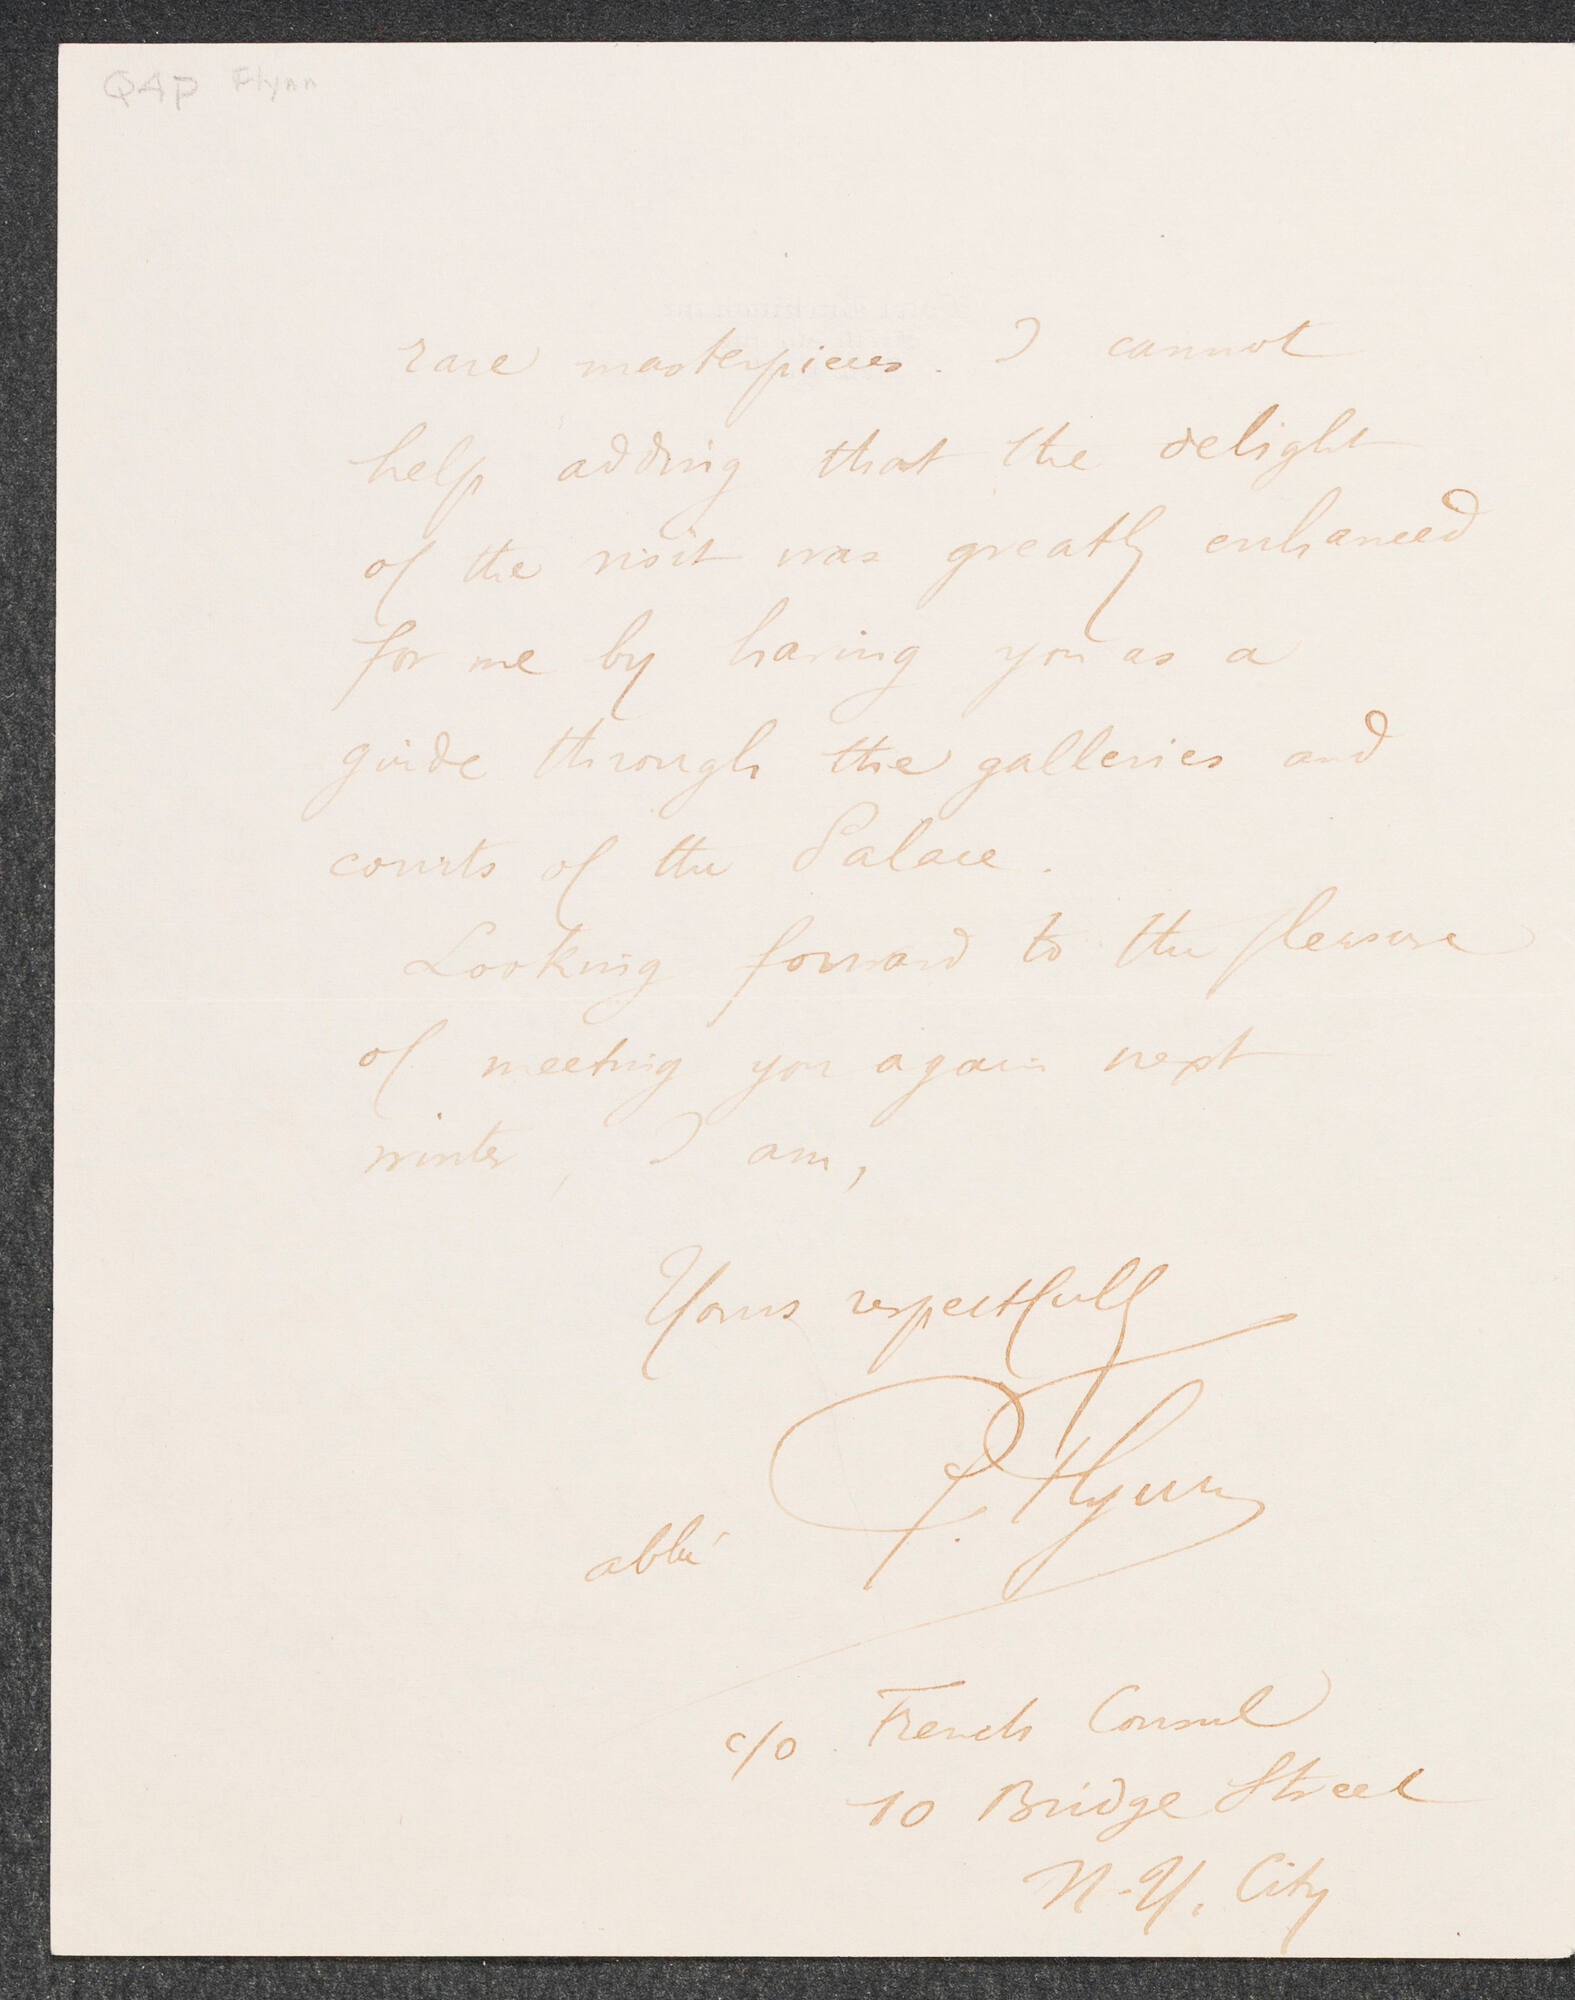 QAP Flynn
rare masterpieces. I cannot
help adding that the delight
of the visit was greatly enhanced
for me by having you as a
guide through the galleries and
courts of the Palace.
Looking forward to the pleasure
of meeting you again next
winter, I am,
Yours respectfully
P. Flynn
abbé
c/o French Consul
10 Bridge Street
N-Y. City